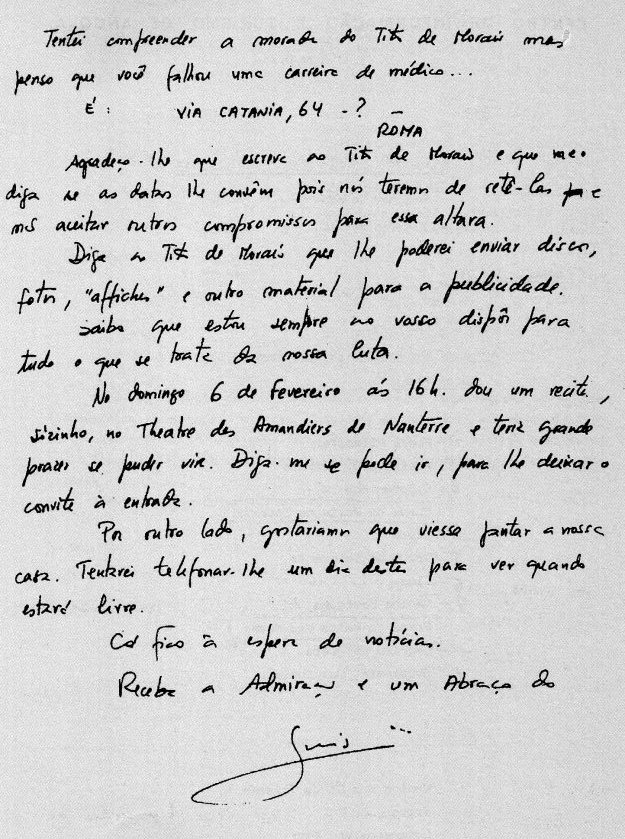 Tentei compreender a morada do Tito de Morais mas
penso que você falhou uma carreira de médico...
É : VIA CATANIA, 64 - ? —
ROMA
Agradeço-lhe que escreva ao Tito de Morais e que me
diga se as datas lhe convêm pois nós teremos de retê-las e
não aceitar outros compromissos para essa altura.
Diga ao Tito de Morais que lhe poderei enviar discos,
fotos, "affiches" e outro material para a publicidade.
Saiba que estou sempre ao vosso dispôr para
tudo o que se trate da nossa luta.
No domingo 6 de Fevereiro às 16h. dou um recital,
sózinho, no Theatre des Amandiers de Nanterre e teria grande
prazer se puder vir. Diga-me se pode ir, para lhe deixar o
convite à entrada.
Por outro lado, gostariamos que viesse jantar a nossa
casa. Tentarei telefonar-lhe um dia destes para ver quando
estará livre.
Cá fico à espera de notícias.
Receba a Admiração e um Abraço do
Luis ...